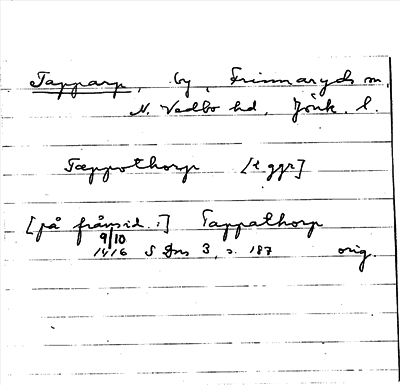 Tapparp, by, Frinnaryds sn,
N. Vedbo hd, Jönk. l.
Tæppothorp [2 ggr]
[på frånsid.:] Tappathorp
9/10
1416 S Dns 3, s. 187 orig.